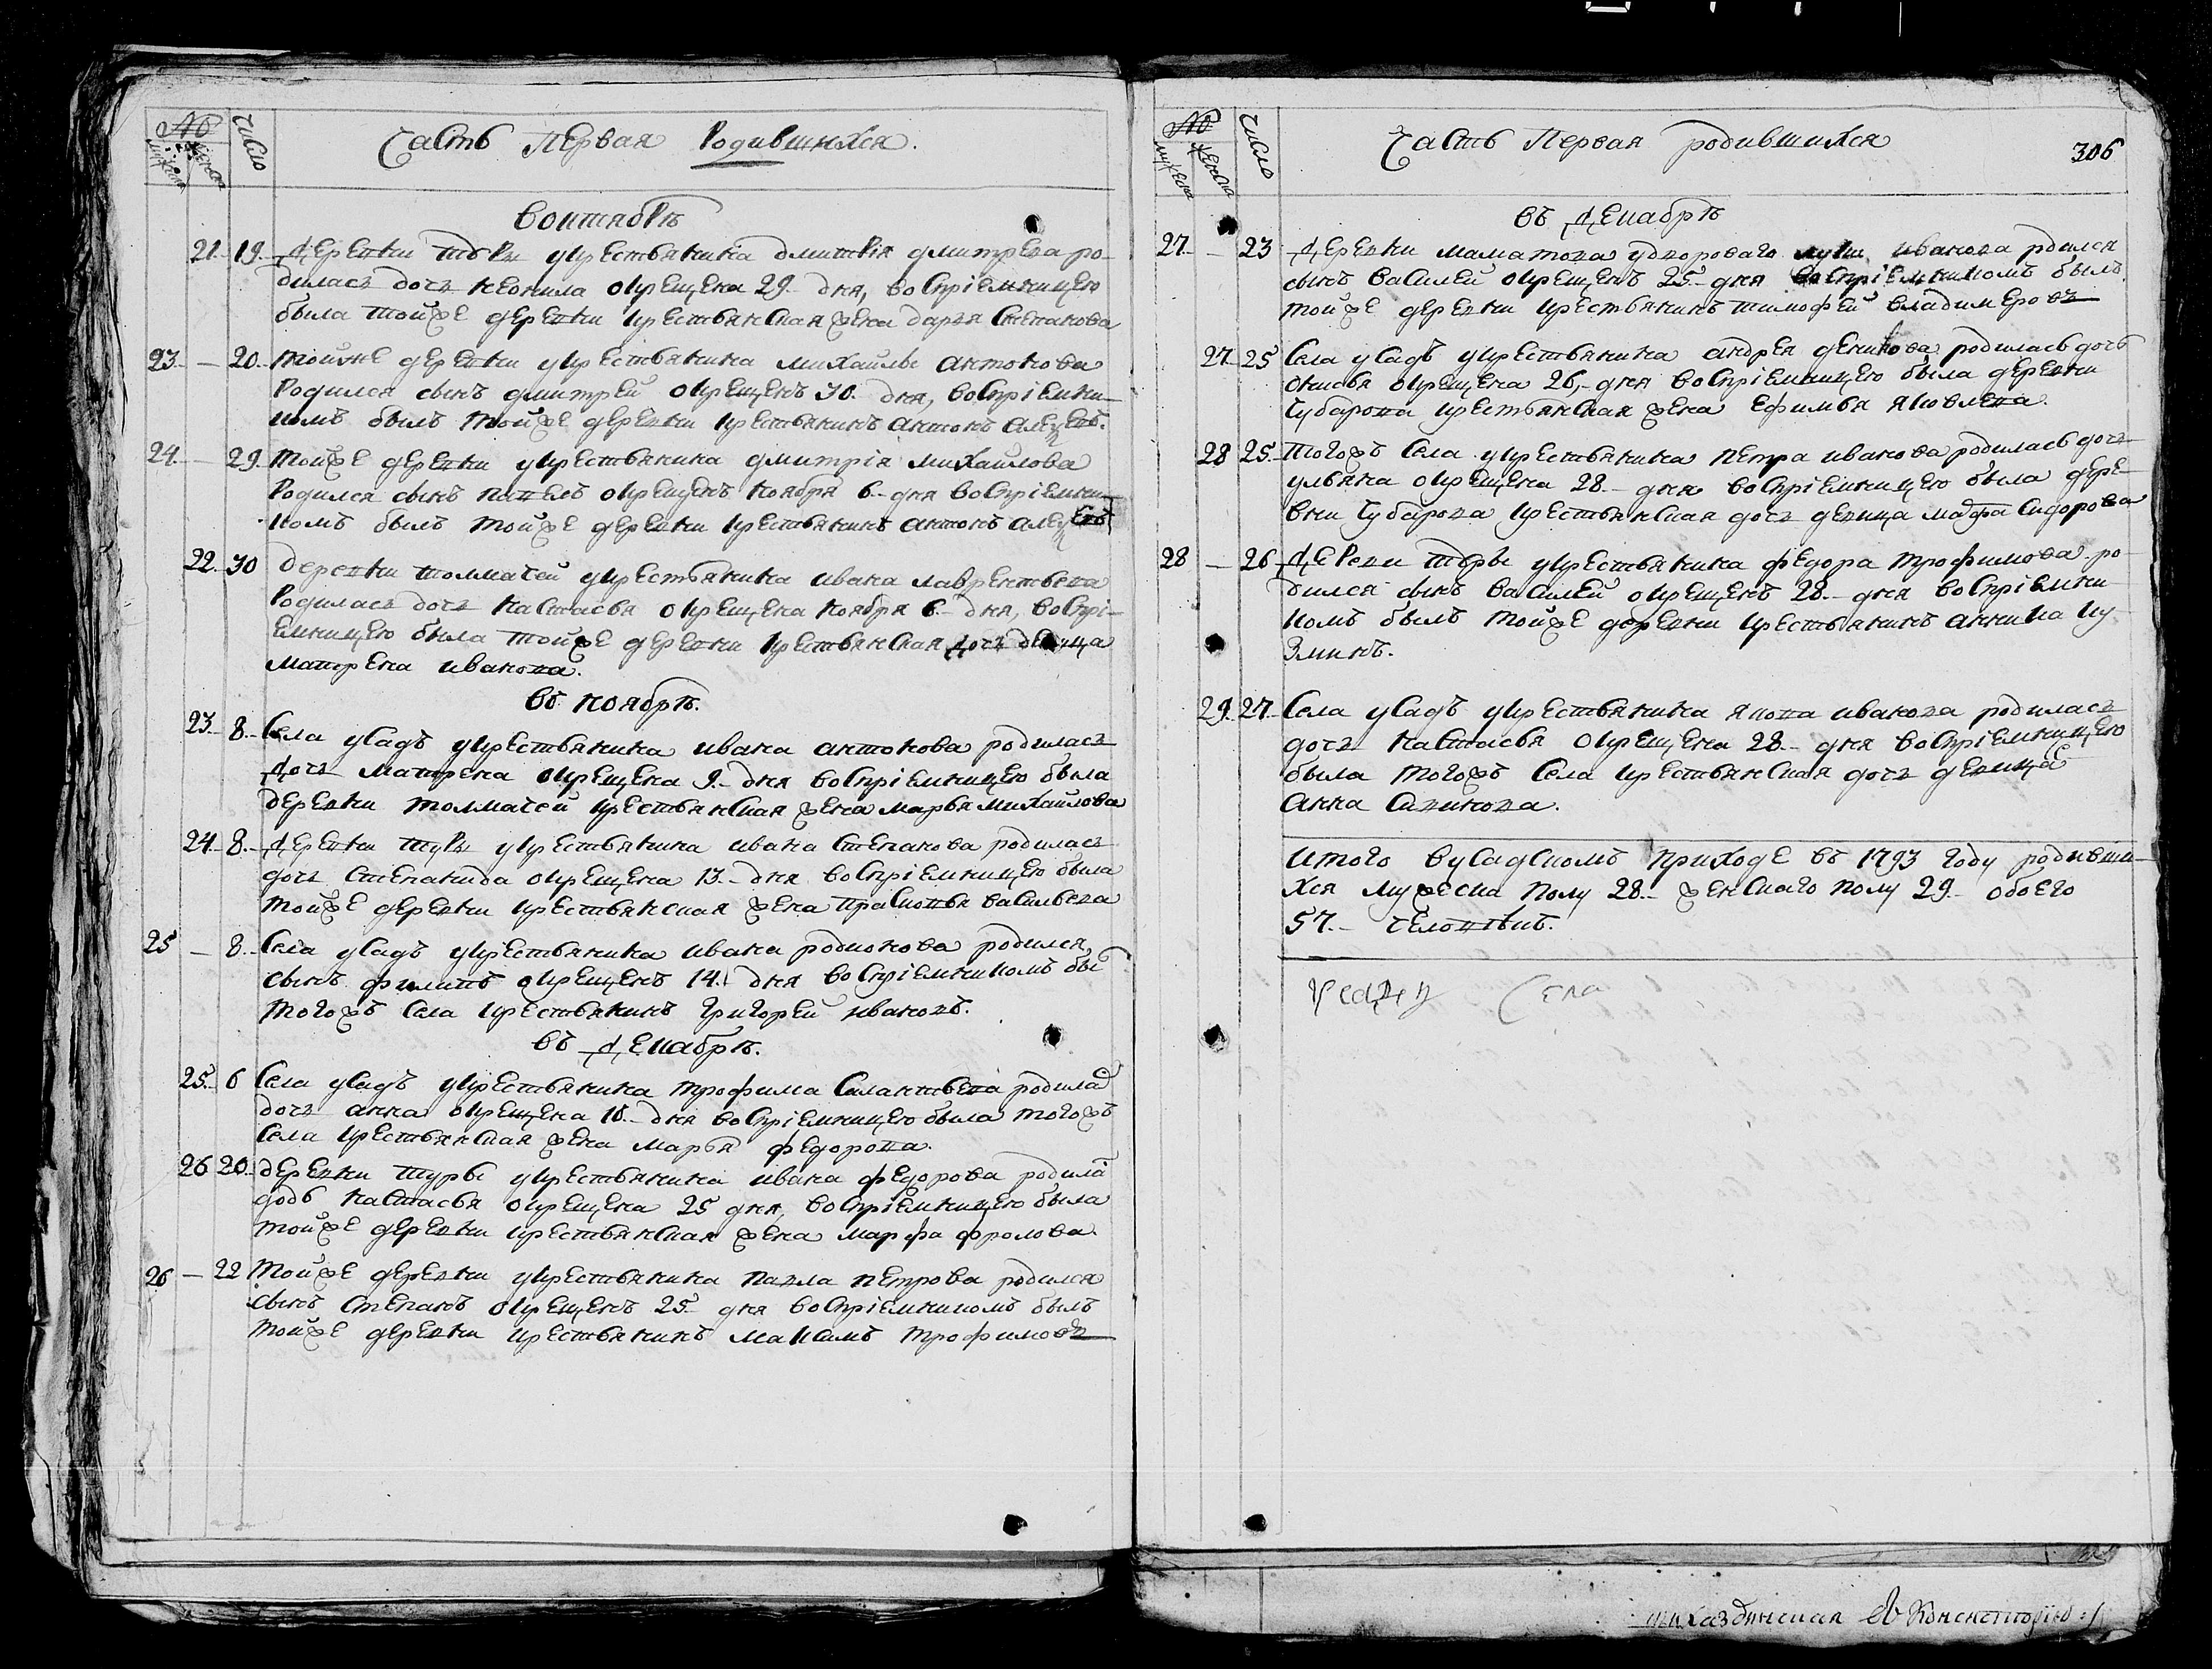 №
мужеска
женска
число
Часть Первая Родившихся.
Воктябрѣ
21. 19. Деревни туры укрестьянина дмитрія дмитрева ро-
дилась дочь неонила окрещена 29 дня, воспріемницею
была тойже деревни крестьянская жена дарья Степанова
23. — 20. тойже деревни укрестьянина михайлы антонова
Родился сынъ дмитрей окрещенъ 30. дня, воспріемни-
комъ былъ тойже деревни крестьянинъ антонъ
24. — 29. тойже деревни укрестьянина дмитрія михайлова
Родился сынъ павелъ окрещенъ ноября 6 дня воспріемни-
комъ былъ тойже деревни крестьянинъ антонъ
22. 30 деревни толмачей укрестьянина ивана лаврентьева
Родилась дочь настасья окрещена ноября 6 дня, воспрі-
емницею была тойже деревни крестьянская дочь девица
матрена иванова.
въ ноябрѣ.
23. 8. Села усадъ укрестьянина ивана антонова родилась
дочь матрена окрещена 9. дня воспріемницею была
деревни толмачей крестьянская жена марья михайлова
24. 8. Деревни туры укрестьянина ивана степанова родилась
дочь степанида окрещена 13. дня воспріемницею была
тойже деревни крестьянская жена прасковья васильева
25 — 8. Села усадъ укрестьянина ивана родионова родился
сынъ филипъ окрещенъ 14. дня воспріемникомъ бы
тогожъ села крестьянинъ григорей ивановъ.
въ Декабрѣ.
25. 6 Села усадъ укрестьянина трофима силантьева родила
дочь анна окрещена 10. дня воспріемницею была тогожъ
села крестьянская жена марья федорова.
26 20. деревни туры укрестьянина ивана федорова родила
дочь настасья окрещена 25 дня, воспріемницею была
тойже деревни крестьянская жена марфа фролова
26 — 22 тойже деревни укрестьянина павла петрова родился
сынъ степанъ окрещенъ 25 дня воспріемникомъ былъ
тойже деревни крестьянинъ максимъ трофимовъ
№
мужеска
женска
число
Часть Первая родившихся
306
въ Декабрѣ
27. — 23 Деревни маматова удвороваго луки иванова рдился
сынъ василей окрещенъ 25 дня воспріемникомъ былъ
тойже деревни крестьянинъ тимофей владимеровъ
27. 25 Села усадъ укрестьянина андрея денисова родилась дочь
окрещена 26, дня воспріемницею была деревни
Чубарова крестьянская жена ефимья яковлева.
28 25. тогожъ села укрестьянина петра иванова родилась дочь
ульяна окрещена 28. дня воспріемницею была дере-
вни Чубарова крестьянская дочь девица марфа сидорова
28 — 26 Деревни туры укрестьянина федора трофимова ро-
дился сынъ василей окрещенъ 28. дня воспріемни-
комъ былъ тойже деревни крестьянинъ аникиа ку-
зминъ.
29. 27. Села усадъ укрестьянина якова иванова родилась
дочь настасья окрещена 28. дня воспріемницею
была тогожъ села крестьянская дочь девица
анна
итого вусадскомъ приходе въ 1793 году родивши-
хся мужеска полу 28. женскаго полу 29. обоего
57. человѣкъ.
Усады Села
Консисторію